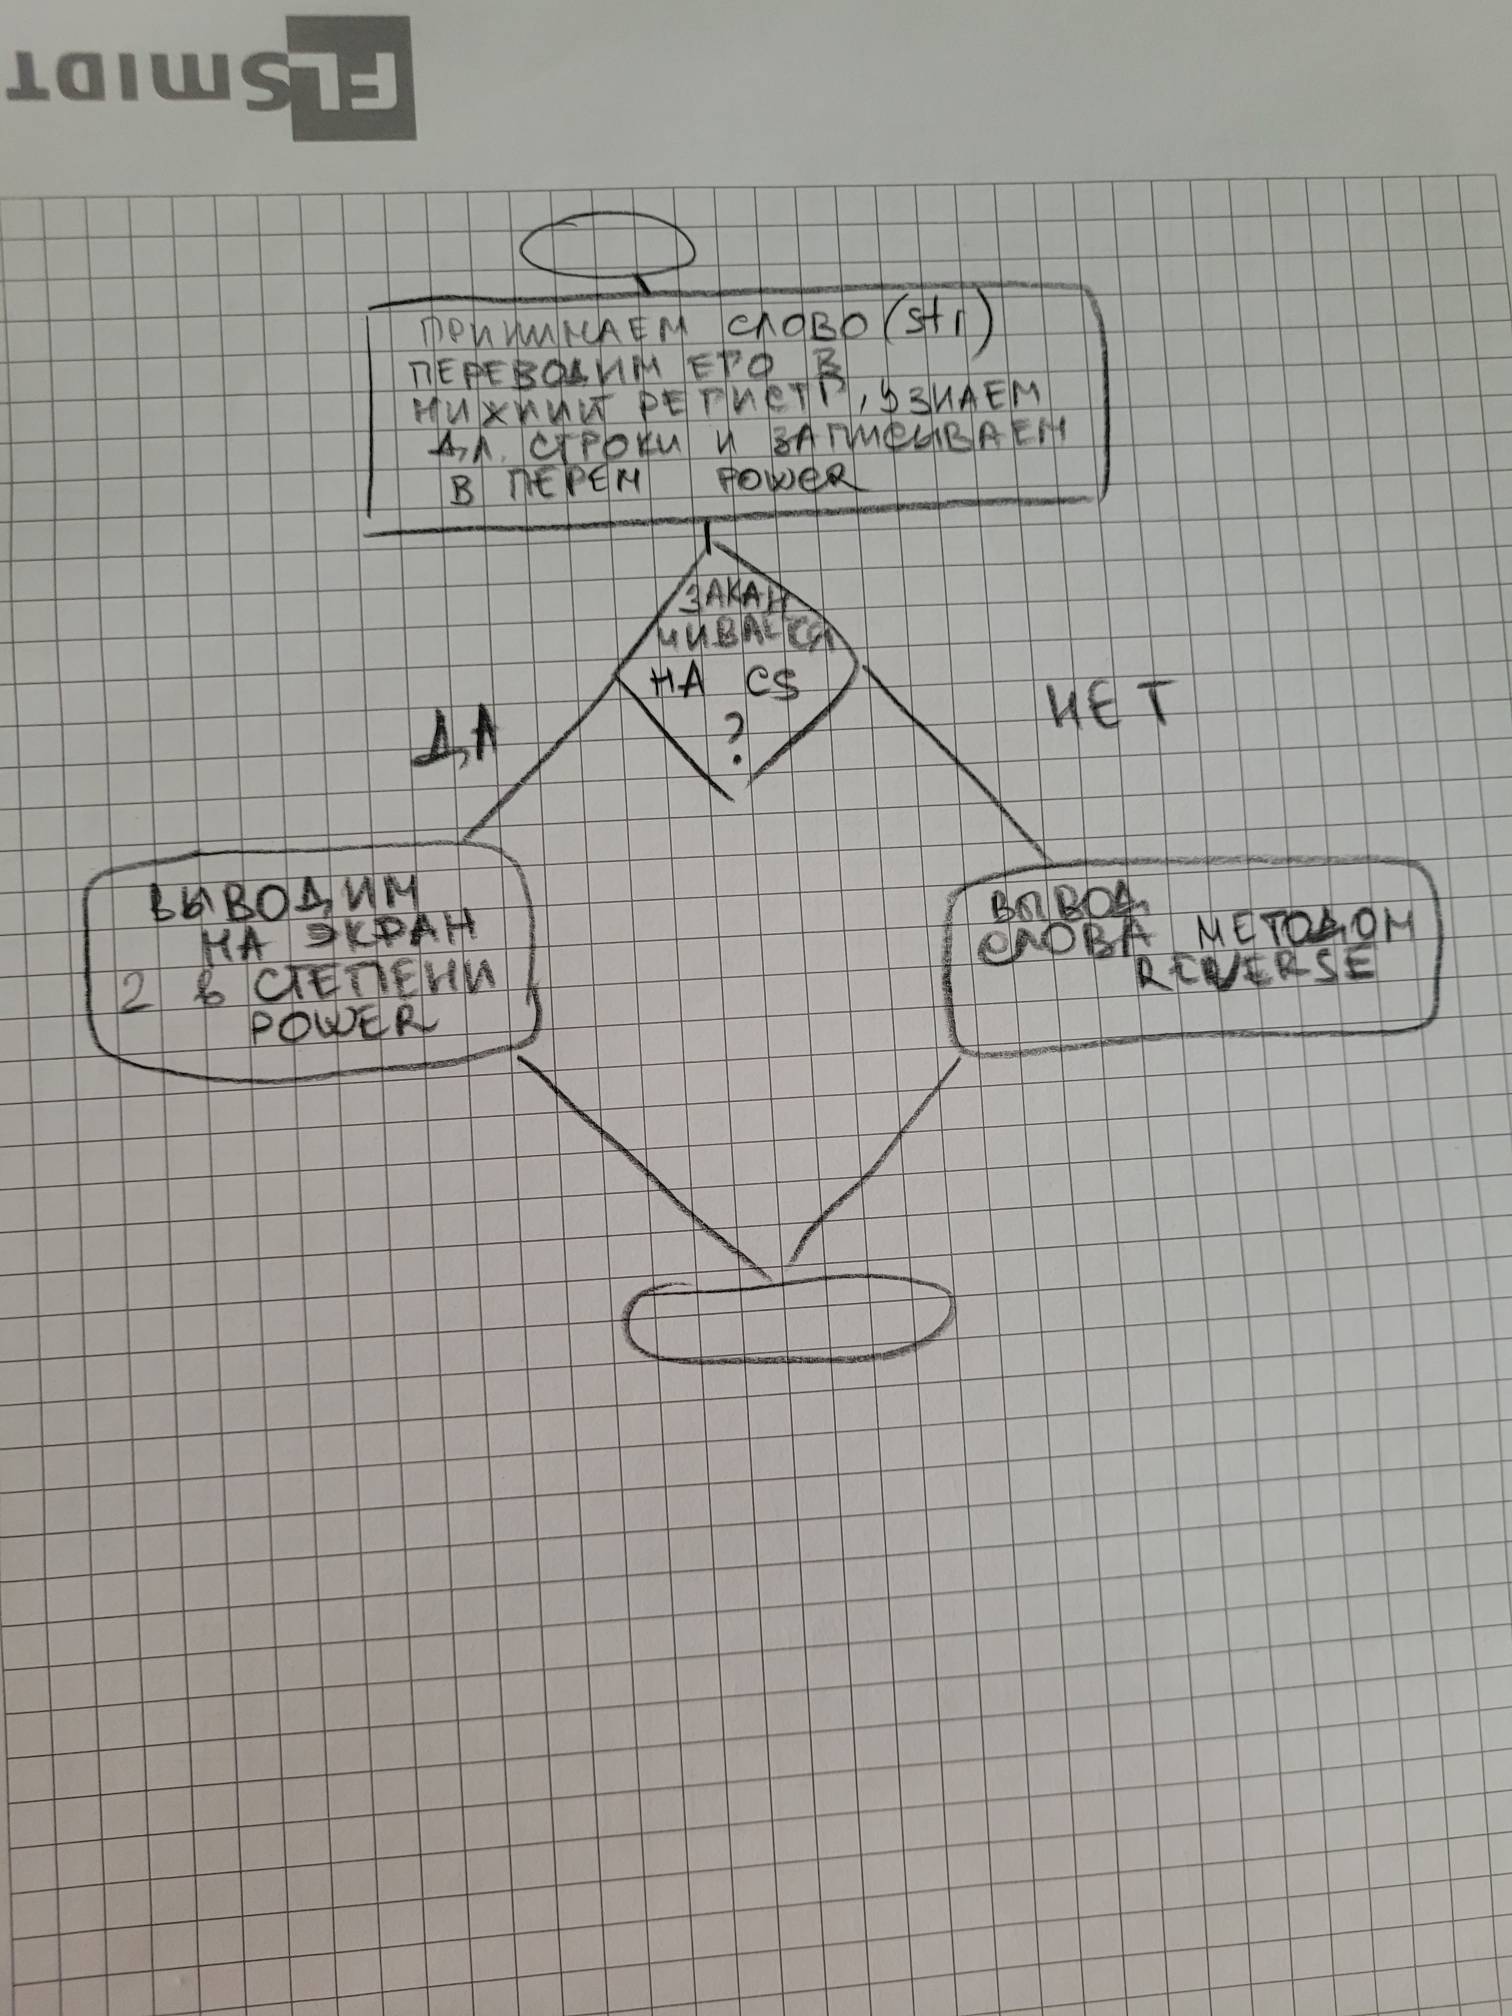 FLSMIDT
ПРИНИМАЕМ СЛОВО (str)
ПЕРЕВОДИМ ЕГО В
НИЖНИЙ РЕГИСТР, УЗНАЕМ
ДЛ. СТРОКИ И ЗАПИСЫВАЕМ
В ПЕРЕМ POWER
ЗАКАН
ЧИВАЕТСЯ
НА CS
?
ДА
НЕТ
ВЫВОДИМ
НА ЭКРАН
2 В СТЕПЕНИ
POWER
ВЫВОД
СЛОВА МЕТОДОМ
REVERSE